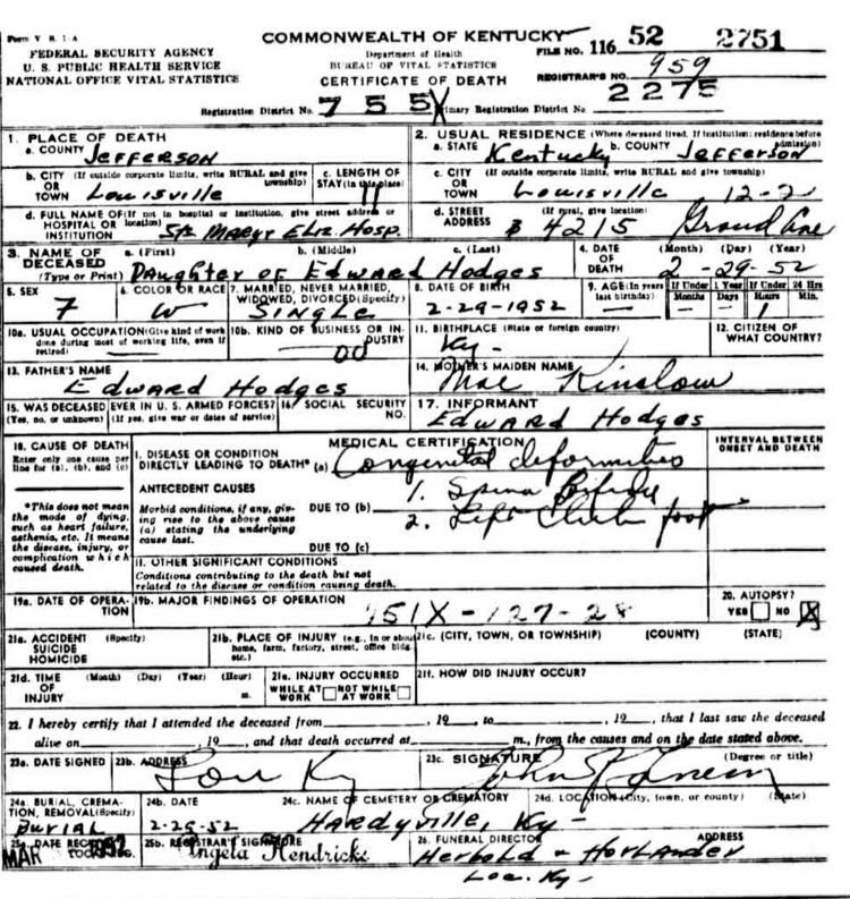 Form V. S. 1-A
COMMONWEALTH OF KENTUCKY
FILE NO. 116 52 2751
FEDERAL SECURITY AGENCY
U. S. PUBLIC HEALTH SERVICE
NATIONAL OFFICE VITAL STATISTICS
Department of Health
BUREAU OF VITAL STATISTICS
CERTIFICATE OF DEATH
REGISTRAR'S NO. 959
Registration District No. 755 Primary Registration District No. 2275
1. PLACE OF DEATH
a. COUNTY Jefferson
2. USUAL RESIDENCE (Where deceased lived. If institution: residence before admission)
a. STATE Kentucky b. COUNTY Jefferson
b. CITY (If outside corporate limits, write RURAL and give township)
OR
TOWN Louisville
c. LENGTH OF STAY (in this place)
c. CITY (If outside corporate limits, write RURAL and give township)
OR
TOWN Louisville
d. FULL NAME OF (If not in hospital or institution, give street address or location)
HOSPITAL OR
INSTITUTION Sts Marys Eliz. Hosp.
d. STREET ADDRESS (If rural, give location)
4215 Grand Ave
3. NAME OF DECEASED (Type or Print)
a. (First) b. (Middle) c. (Last)
Daughter of Edward Hodges
4. DATE OF DEATH (Month) (Day) (Year)
2-29-52
5. SEX
F
6. COLOR OR RACE
W
7. MARRIED, NEVER MARRIED, WIDOWED, DIVORCED (Specify)
Single
8. DATE OF BIRTH
2-29-1952
9. AGE (In years last birthday) If Under 1 Year Months Days If Under 24 Hrs Hours Min.
— — — 1
10a. USUAL OCCUPATION (Give kind of work done during most of working life, even if retired)
10b. KIND OF BUSINESS OR INDUSTRY
11. BIRTHPLACE (State or foreign country)
Ky.
12. CITIZEN OF WHAT COUNTRY?
13. FATHER'S NAME
Edward Hodges
14. MOTHER'S MAIDEN NAME
Mae Kinslow
15. WAS DECEASED EVER IN U. S. ARMED FORCES?
(Yes, no, or unknown) (If yes, give war or dates of service)
16. SOCIAL SECURITY NO.
17. INFORMANT
Edward Hodges
18. CAUSE OF DEATH
Enter only one cause per line for (a), (b), and (c)
*This does not mean the mode of dying, such as heart failure, asthenia, etc. It means the disease, injury, or complication which caused death.
MEDICAL CERTIFICATION
INTERVAL BETWEEN ONSET AND DEATH
I. DISEASE OR CONDITION
DIRECTLY LEADING TO DEATH* (a) Congenital deformities
ANTECEDENT CAUSES
1. Spina Bifida
Morbid conditions, if any, giving rise to the above cause (a) stating the underlying cause last.
DUE TO (b)
2. Left Club foot
DUE TO (c)
II. OTHER SIGNIFICANT CONDITIONS
Conditions contributing to the death but not related to the disease or condition causing death.
19a. DATE OF OPERATION
19b. MAJOR FINDINGS OF OPERATION
751X-127-28
20. AUTOPSY?
YES NO X
21a. ACCIDENT SUICIDE HOMICIDE (Specify)
21b. PLACE OF INJURY (e.g., in or about home, farm, factory, street, office bldg. etc.)
21c. (CITY, TOWN, OR TOWNSHIP) (COUNTY) (STATE)
21d. TIME OF INJURY (Month) (Day) (Year) (Hour) m.
21e. INJURY OCCURRED
WHILE AT WORK NOT WHILE AT WORK
21f. HOW DID INJURY OCCUR?
22. I hereby certify that I attended the deceased from ____, 19__, to ____, 19__, that I last saw the deceased
alive on ____, 19__, and that death occurred at ____ m., from the causes and on the date stated above.
23a. DATE SIGNED
23b. ADDRESS
Lou Ky
23c. SIGNATURE (Degree or title)
John
24a. BURIAL, CREMATION, REMOVAL (Specify)
Burial
24b. DATE
2-29-52
24c. NAME OF CEMETERY OR CREMATORY
24d. LOCATION (City, town, or county) (State)
Hardyville, Ky-
25a. DATE REC'D
MAR 1952
25b. REGISTRAR'S SIGNATURE
Angela Hendricks
26. FUNERAL DIRECTOR ADDRESS
Herbold & Horlander
Lou. Ky-